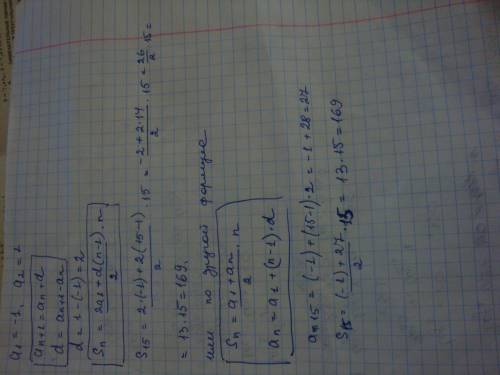 a₁ = -1, a₂ = 1
aₙ₊₁ = aₙ + d
d = aₙ₊₁ - aₙ
d = 1 - (-1) = 2
Sₙ = (2a₁ + d(n-1))/2 · n
S₁₅ = (2·(-1) + 2(15-1))/2 · 15 = (-2 + 2·14)/2 · 15 = 26/2 · 15 =
= 13·15 = 169.
или по другой формуле
Sₙ = (a₁ + aₙ)/2 · n
aₙ = a₁ + (n-1)·d
a₁₅ = (-1) + (15-1)·2 = -1 + 28 = 27
S₁₅ = ((-1) + 27)/2 · 15 = 13·15 = 169